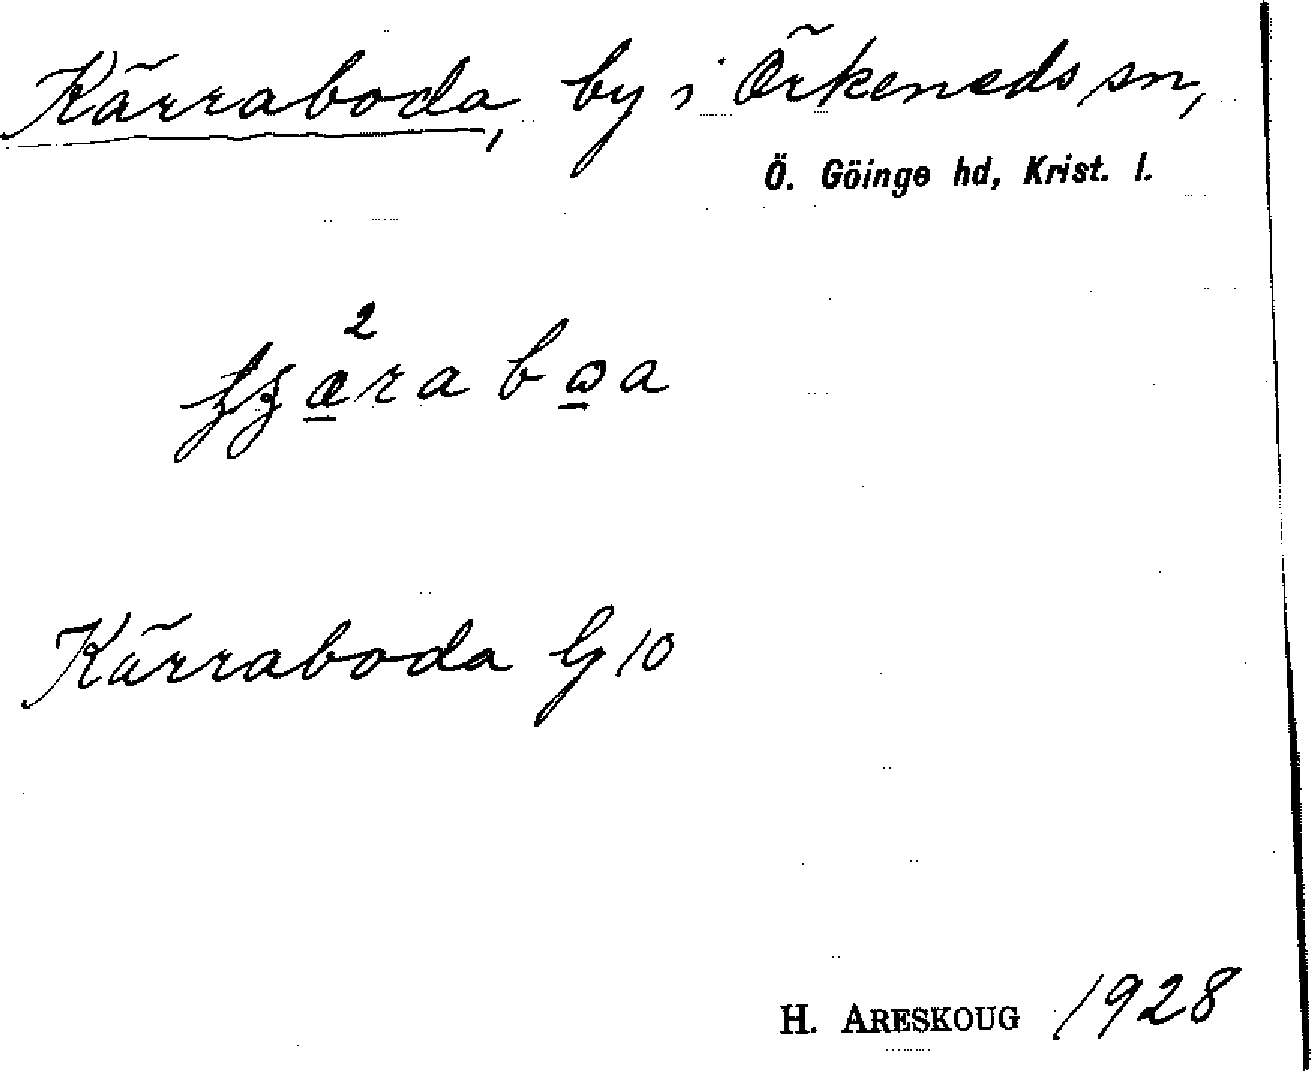 Kärraboda, by i Örkeneds sn,
Ö. Göinge hd, Krist. l.
Kärraboda G 10
H. ARESKOUG 1928